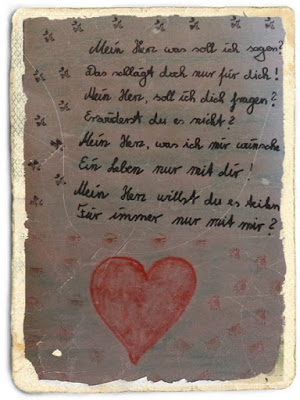 Mein Herz was soll ich sagen?
Das schlägt doch nur für dich!
Mein Herz, soll ich dich fragen?
Erwiderst du es nicht?
Mein Herz, was ich mir wünsche
Ein Leben nur mit dir!
Mein Herz willst du es teilen
Für immer nur mit mir?